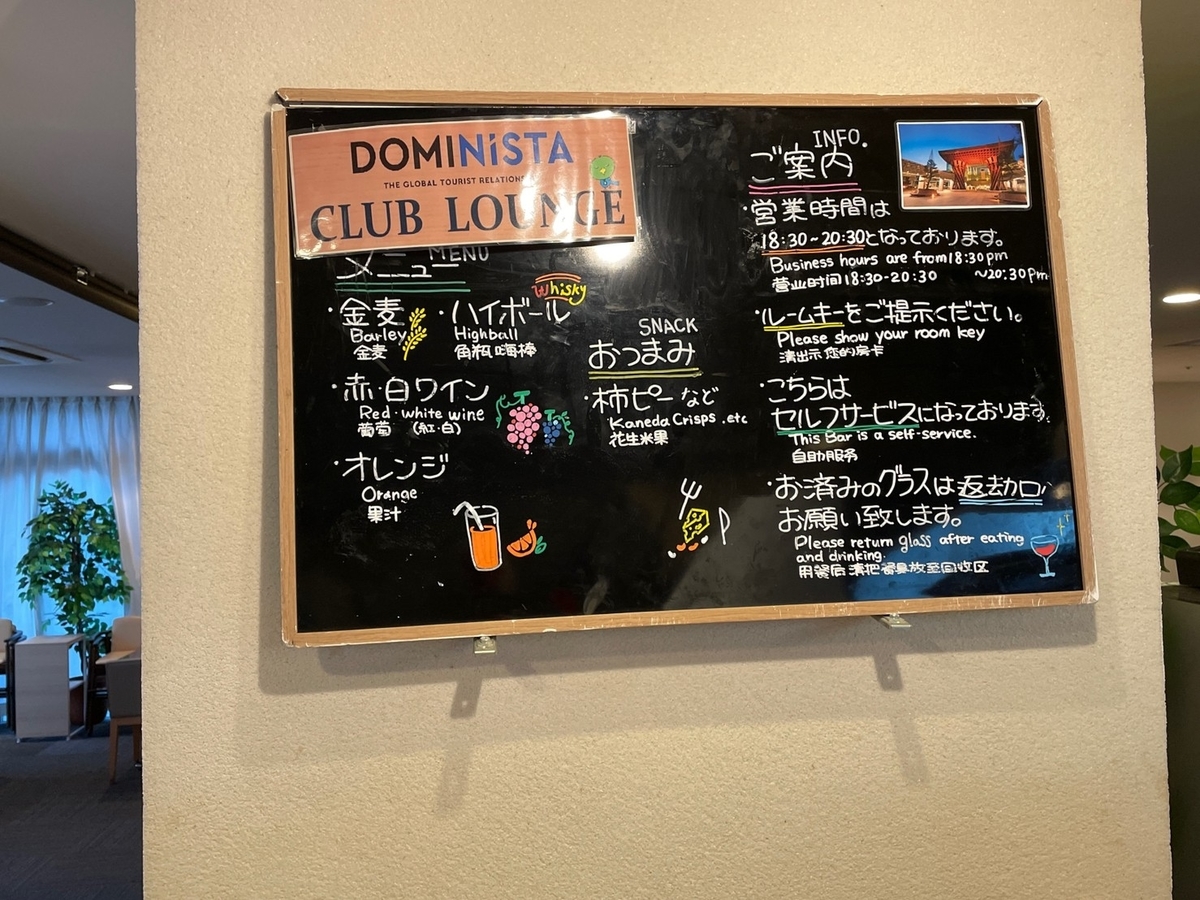 DOMINiSTA
THE GLOBAL TOURIST RELATIONS
CLUB LOUNGE
メニュー MENU
・金麦
Barley
金麦
・ハイボール
Whisky
Highball
角瓶嗨棒
・赤・白ワイン
Red・white wine
葡萄 (紅・白)
・オレンジ
Orange
果汁
SNACK
おつまみ
・柿ピーなど
Kaneda Crisps .etc
花生米果
INFO.
ご案内
・営業時間は
18:30~20:30となっております。
Business hours are from18:30pm
~20:30pm
营业时间18:30-20:30
・ルームキーをご提示ください。
Please show your room key
请出示您的房卡
・こちらは
セルフサービスになっております。
This Bar is a self-service.
自助服务
・お済みのグラスは返却口へ
お願い致します。
Please return glass after eating
and drinking.
用餐后请把餐具放至回收区